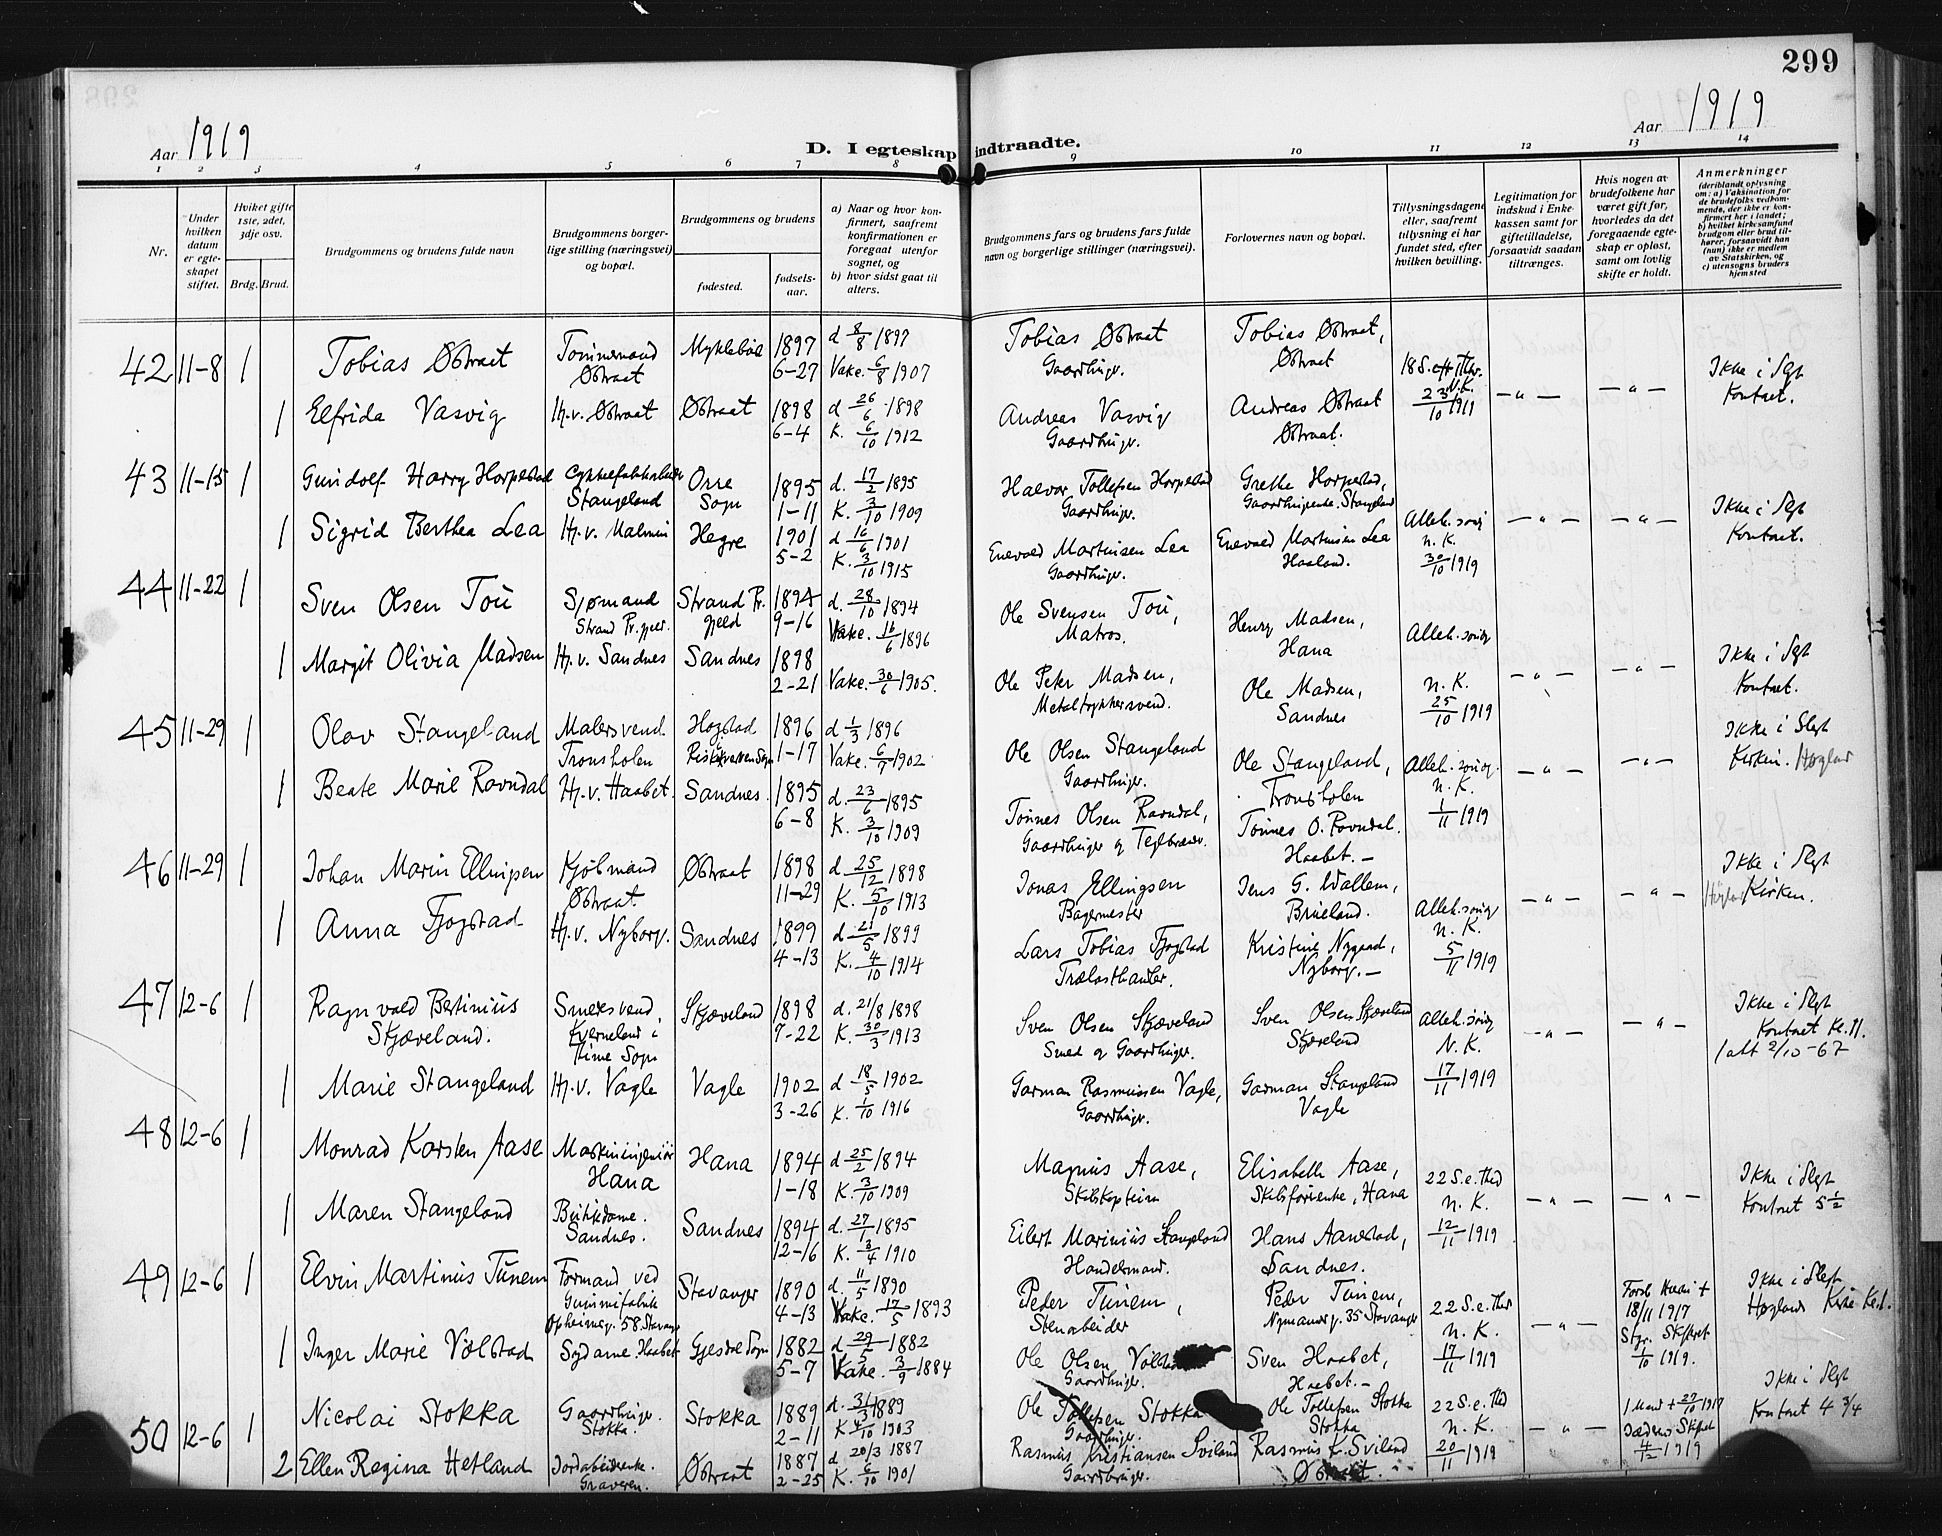 299
Aar 1919
Aar 1919
D. Iegteskap indtraadte.
1 2 3 4 5 6 7 8 9 10 11 12 13 14
Nr.
Under hvilken datum er egteskapet stiftet.
Hviket gifte 1ste, 2det, 3dje osv.
Brdg. Brud.
Brudgommens og brudens fulde navn
Brudgommens borgerlige stilling (næringsvei) og bopæl.
Brudgommens og brudens
fødested.
fødselsaar.
a) Naar og hvor konfirmert, saafremt konfirmationen er foregaat utenfor sognet, og
b) hvor sidst gaat til alters.
Brudgommens fars og brudens fars fulde navn og borgerlige stillinger (næringsvei).
Forlovernes navn og bopæl.
Tillysningsdagene eller, saafremt tillysning ei har fundet sted, efter hvilken bevilling.
Legitimation for indskud i Enkekassen samt for giftetilladelse, forsaavidt saadan tiltrænges.
Hvis nogen av brudefolkene har været gift før, hvorledes da det foregaaende egteskap er opløst, samt om lovlig skifte er holdt.
Anmerkninger
(deriblandt oplysning om: a) Vaksination for de brudefolks vedkommende, der ikke er konfirmert her i landet; b) hvilket kirkesamfund brudgom eller brud tilhører, forsaavidt han (hun) ikke er medlem av Statskirken, og c) utensogns bruders hjemsted
42 11-8 1 Tobias Østraat Østraat 1897 6-27 d 8/8 1897 Vake. 6/8 1907 Tobias Østraat Gaardbruger. Tobias Østraat, Østraat 23/10 1911 Ikke i Slgt Kontract.
1 Elfrida Vasvig H.v. Østraat Østraat 1898 6-4 d 26/6 1898 K. 6/10 1912 Andreas Vasvig Gaardbruger. Andreas Østraat Østraat.
43 11-15 1 Gundolf Harry Horpestad Stangeland Orre Sogn 1895 1-11 d. 17/2 1895 K. 3/10 1909 Halvor Tollefsen Horpestad Gaardbruger. Grethe Horpestad, Stangeland N.K. 30/10 1919 Ikke i Slgt Kontract.
1 Sigrid Berthea Lea H.v. Malmin Hegre 1901 5-2 d 16/6 1901 K. 3/10 1915 Enevald Martinsen Lea Gaardbruger. Enevald Martinsen Lea Haaland.
44 11-22 1 Sven Olsen Tou Sjømand Strand Pr.gjeld 1894 9-16 d. 28/10 1894 Vake. 16/6 1896 Ole Svensen Tou, Matros. Henry Madsen, Hana N.K. 25/10 1919 Ikke i Slgt Kontract.
1 Margit Olivia Madsen H.v. Sandnes Sandnes 1898 2-21 Vake. 30/6 1905. Ole Peter Madsen, Metaltrykkersvend. Ole Madsen, Sandnes
45 11-29 1 Olav Stangeland Malersvend Tronsholen Hogstad 1896 1-17 d 1/3 1896 Vake. 6/7 1902 Ole Olsen Stangeland Gaardbruger. Ole Stangeland, Tronsholen N.K. 1/11 1919 Ikke i Slegt Kirken. Høgland
1 Beate Marie Ravndal H.v. Haabet. Sandnes. 1895 6-8 d. 23/6 1895 K. 3/10 1909 Tønnes Olsen Ravndal, Gaardbruger og Teglbrænder. Tønnes O. Ravndal. Haabet.—
46 11-29 1 Johan Marin Ellingsen Kjøbmand Østraat. Østraat 1898 11-29 d. 25/12 1898 K. 5/10 1913 Jonas Ellingsen Bagermester Jens G. Wallem, Brueland. N.K. 5/11 1919 Ikke i Slegt Kirken.
1 Anna Fjogstad H.v. Nyborg. Sandnes 1899 4-13 d 21/5 1899 K. 4/10 1914 Lars Tobias Fjogstad Trælasthandler. Kristine Nygaard, Nyborg.—
47 12-6 1 Ragnvald Bertinius Skjæveland. Smedsvend, Kverneland i Time Sogn Skjæveland 1898 7-22 d. 21/8 1898 K. 30/3 1913 Sven Olsen Skjæveland Smed og Gaardbruger. Sven Olsen Skjæveland Skjæveland N.K. 17/11 1919 Ikke i Slegt Kontract Kl. 11.
1 Marie Stangeland H.v. Vagle Vagle 1902 3-26 d 18/5 1902 K. 1/10 1916 Garman Rasmussen Vagle, Gaardbruger. Garman Stangeland Vagle
48 12-6 1 Monrad Karsten Aase Maskiningeniør Hana Hana 1894 1-18 d 25/2 1894 K. 3/10 1909 Magnus Aase, Skibskaptein Elisabeth Aase, Hana 22 S.e.Thd N.K. 12/11 1919 Ikke i Slegt Kontract 5 1/2
1 Maren Stangeland Butikdame. Sandnes. Sandnes 1894 12-16 d. 27/1 1895 K. 3/4 1910 Eilert Marinius Stangeland Handelsmand. Hans Aanestad, Sandnes.
49 12-6 1 Elvin Martinus Tunem Formand ved Gummifabrik 58 Stavanger Stavanger 1890 4-13 d. 11/5 1890 Vake. 17/5 1893 Peder Tunem, Stenarbeider Peder Tunem, 35 Stavanger 22 S.e.Thd N.K. 17/11 1919 18/11 1917 1/10 1919. Ikke i Slegt Høglands Kirke
1 Inger Marie Vølstad Sydame. Haabet Gjesdal Sogn 1882 5-7 d 29/5 1882 Vake. 3/9 1884 Ole Olsen Vølstad Gaardbruger. Sven Haabet, Haabet.—
50 12-6 1 Nicolai Stokka Gaardbruger. Stokka. Stokka 1889 2-11 d. 31/3 1889 K 4/10 1903 Ole Tollefsen Stokka Gaardbruger. Ole Tollefsen Stokka Stokka 22 S.e.Thd N.K. 20/11 1919 1 Mand + 27/10 1917 4/12 1919 Ikke i Slegt Kontract 4 3/4
2 Ellen Regina Hetland Graveren. Østraat 1887 2-25 d 20/3 1887 K. 6/10 1901 Rasmus Kristiansen Sviland Gaardbruger. Rasmus K. Sviland Østraat.